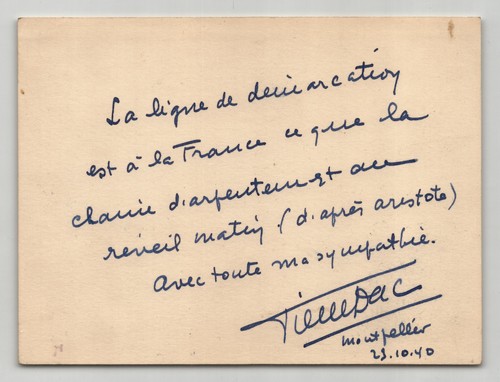 La ligne de demarcation
est à la France ce que la
chaine d'arpenteur est au
réveil matin. (d'après aristote)
Avec toute ma sympathie.
Pierre Dac
Montpellier
23.10.40